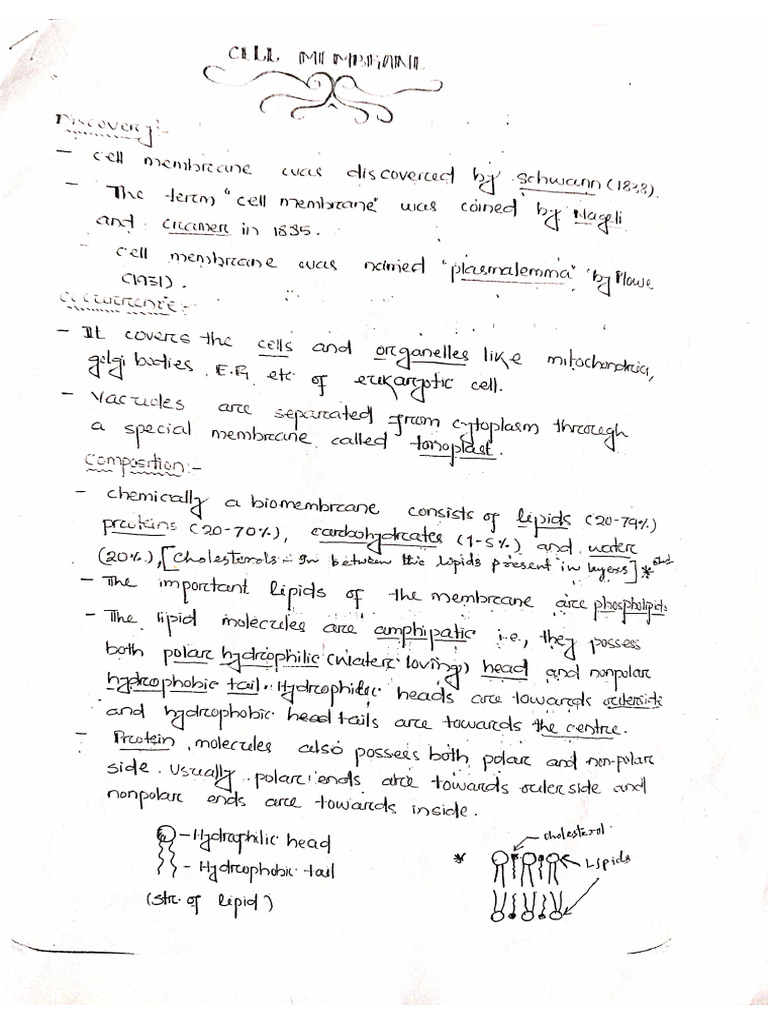 CELL MEMBRANE
Discovery:-
- Cell membrane was discovered by Schwann (1838).
- The term "cell membrane" was coined by Nageli
and cramer in 1835.
- Cell membrane was named "plasmalemma" by Plowe
(1931).
Occurrence:-
- It covers the cells and organelles like mitochondria,
golgi bodies, E.R, etc of eukaryotic cell.
- Vacuoles are separated from cytoplasm through
a special membrane called tonoplast.
Composition:-
- Chemically a biomembrane consists of lipids (20-79%)
proteins (20-70%), carbohydrates (1-5%) and water
(20%), [Cholesterols - In between the lipids present in layers] *
- The important lipids of the membrane are phospholipids
- The lipid molecules are amphipatic i.e., they possess
both polar hydrophilic (water loving) head and nonpolar
hydrophobic tail. Hydrophilic heads are towards outerside
and hydrophobic head tails are towards the centre.
- Protein molecules also possess both polar and non-polar
side. Usually polar ends are towards outer side and
nonpolar ends are towards inside.
- Hydrophilic head
- Hydrophobic tail
(Str. of lipid)
cholesterol
*
Lipids